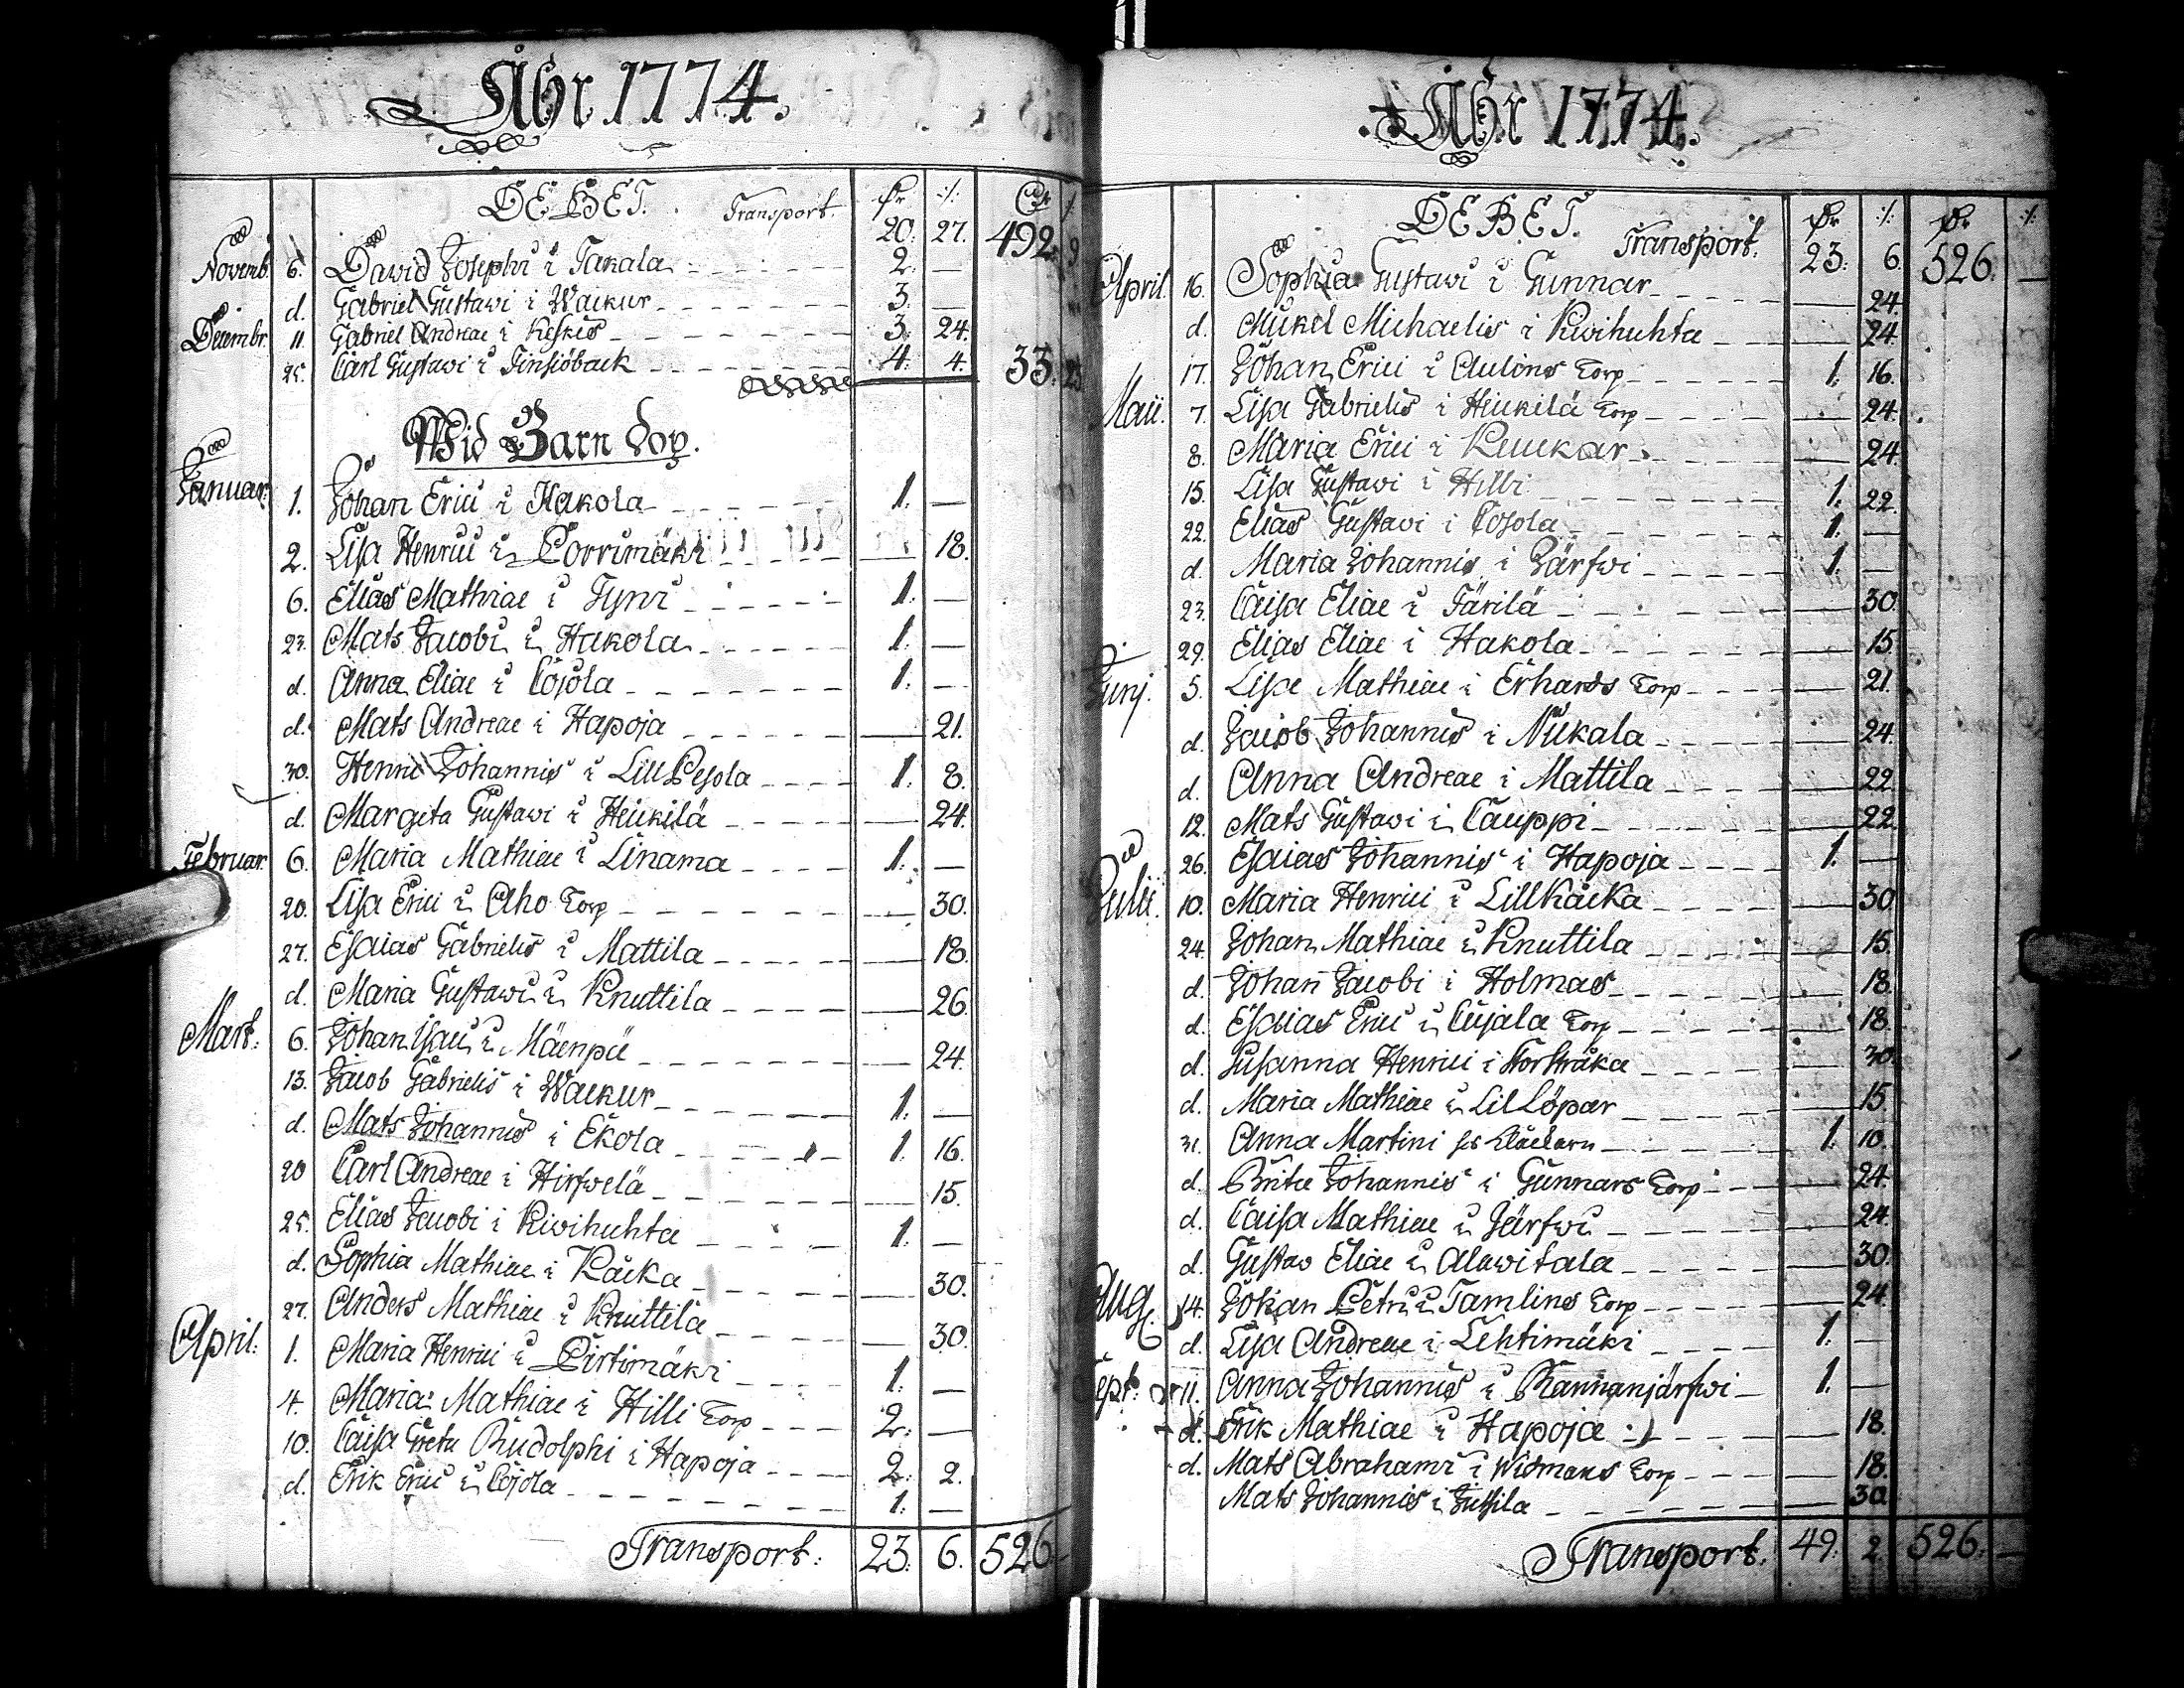 Åhr 1774.
DEBET. Transport. 20: 27. 492: 9
Novemb. 6. David Josephi i Takala 2: —
d. Gabriel Gustavi i Waikur 3: —
Decembr. 11. Gabriel Andreae i Keskis 3: 24.
25. Carl Gustavi i Finsiöback 4: 4. 33: 23.
Wid Barn Dop.
Januar: 1. Johan Erici i Hakola 1: —
2. Lisa Henrici i Porrimäki — 18.
6. Elias Mathiae i Tyni 1: —
23. Mats Jacobi i Hakola 1: —
d. Anna Eliae i Cojola 1: —
d. Mats Andreae i Hapoja — 21.
30. Henric Johannis i Lill Pesola 1: 8.
d. Margeta Gustavi i Heickilä — 24.
Februar. 6. Maria Mathiae i Linama 1: —
20. Lisa Erici i Aho Torp — 30.
27. Esaias Gabrielis i Mattila — 18.
d. Maria Gustavi i Knuttila — 26.
Mart: 6. Johan Esaiae i Mäenpä — 24.
13. Jacob Gabrielis i Waikur 1: —
d. Mats Johannis i Ekola 1: 16.
20 Carl Andreae i Hirfwelä — 15.
25. Elias Jacobi i Kivihuhta 1: —
d. Sophia Mathiae i Kåcka — 30.
27. Anders Mathiae i Knuttila — 30.
April: 1. Maria Henrici i Pirtimäki 1: —
4. Maria Mathiae i Hilli Torp 2: —
10. Caisa Greta Rudolphi i Hapoja 2: 2.
d. Erik Erici i Cojola 1: —
Transport: 23: 6. 526 —
Åhr 1774.
DEBET. Transport. 23: 6. 526: —
April. 16. Sophia Gustavi i Gunnar — 24.
d. Mickel Michaelis i Kivihuhta — 24.
17. Johan Erici i Aulins Torp 1: 16.
Maii. 7. Lisa Gabrielis i Heickilä Torp — 24.
8. Maria Erici i Keuckar — 24.
15. Lisa Gustavi i Hilli 1: 22.
22. Elias Gustavi i Cojola 1: —
d. Maria Johannis i Järfwi 1: —
23. Caisa Eliae i Färilä — 30.
29. Elias Eliae i Hakola — 15.
Junj. 5. Lisa Mathiae i Erhards Torp — 21.
d. Jacob Johannis i Nickala — 24.
d. Anna Andreae i Mattila — 22.
12. Mats Gustavi i Cauppi — 22.
26. Esaias Johannis i Hapoja 1: —
Julii. 10. Maria Henrici i Lill Kåcka — 30
24. Johan Mathiae i Knuttila — 15.
d. Johan Jacobi i Holmas — 18.
d. Esaias Erici i Cujala Torp — 18.
d. Susanna Henrici i Storstråka — 30.
d. Maria Mathiae i Lil Löpar — 15.
31. Anna Martini 1: 10.
d. Brita Johannis i Gunnars Torp — 24.
d. Caisa Mathiae i Järfwi — 24.
d. Gustav Eliae i Alawitala — 30.
Aug. 14. Johan Petri i Tamlins Torp — 24.
d. Lisa Andreae i Lehtimäki 1: —
Sept: 11. Anna Johannis i Kannanjärfwi 1: —
d. Erik Mathiae i Hapoja — 18.
d. Mats Abrahami i Widmans Torp — 18.
Mats Johannis i Jussila — 30.
Transport. 49: 2. 526: —